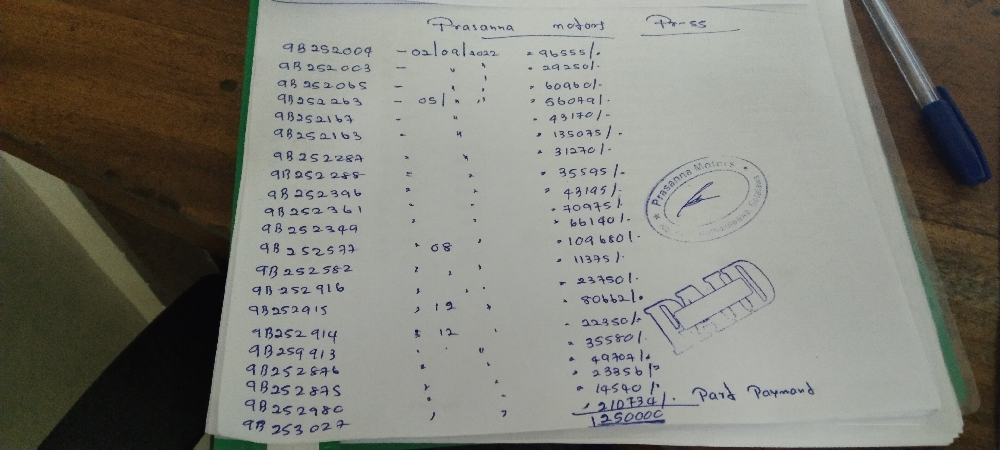 Prasanna motors Pr-ss
9B252004 - 02/09/2022 = 96555/.
9B252003 - " " " 29250/-
9B252065 - " " " 60960/-
9B252263 - 05/ " " " 56079/-
9B252167 - " " 43170/-
9B252163 - " " 135075/-
9B252287 " " " 31270/-
9B252288 " " " 35595/-
9B252396 " " " 43195/-
9B252361 " " " 70975/-
9B252349 " " " 66140/-
9B252577 " 08 " " 109680/-
9B252582 " " " " 11375/-
9B252916 " " " " 23750/-
9B252915 " 12 " " 80662/-
9B252914 " 12 " " 22350/-
9B259913 " " " 35580/-
9B252876 " " " 49704/-
9B252875 " " " 23356/-
9B252980 " " " 14540/-
9B253027 " " " 210734/- Pard Paymand
1250000
Prasanna Motors
PAID